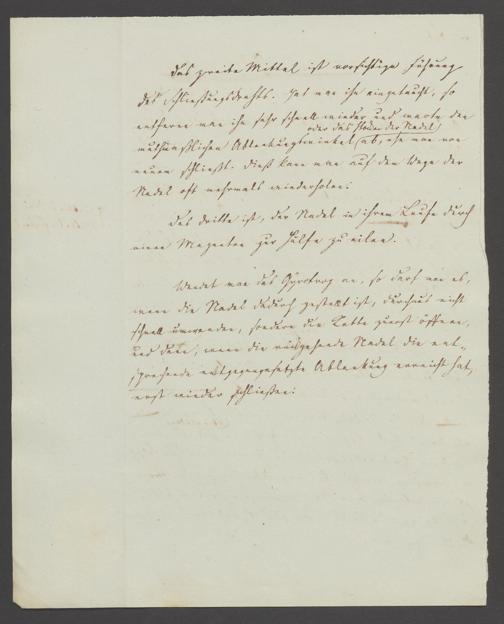 Das zweite Mittel ist vorsichtige Führung
des Schließungsdrahts. Hat man ihn eingetaucht, so
entferne man ihn sehr schnell wieder und warte den
oder das Stehen der Nadel
muthmaßlichen Ablenkungswinkel ab, ehe man von
neuem schließt. Dieß kann man auf dem Wege der
Nadel oft mehrmals wiederholen.
Das dritte ist, der Nadel in ihrem Laufe durch
einen Magneten zur Hülfe zu eilen.
Wendet man das Gyrotrop an, so darf man es,
wenn die Nadel dadurch gestellt ist, durchaus nicht
schnell umwenden, sondern die Kette zuerst öffnen,
und dann, wenn die Nadel die ent-
sprechende entgegengesetzte Ablenkung erreicht hat,
erst wieder schließen.